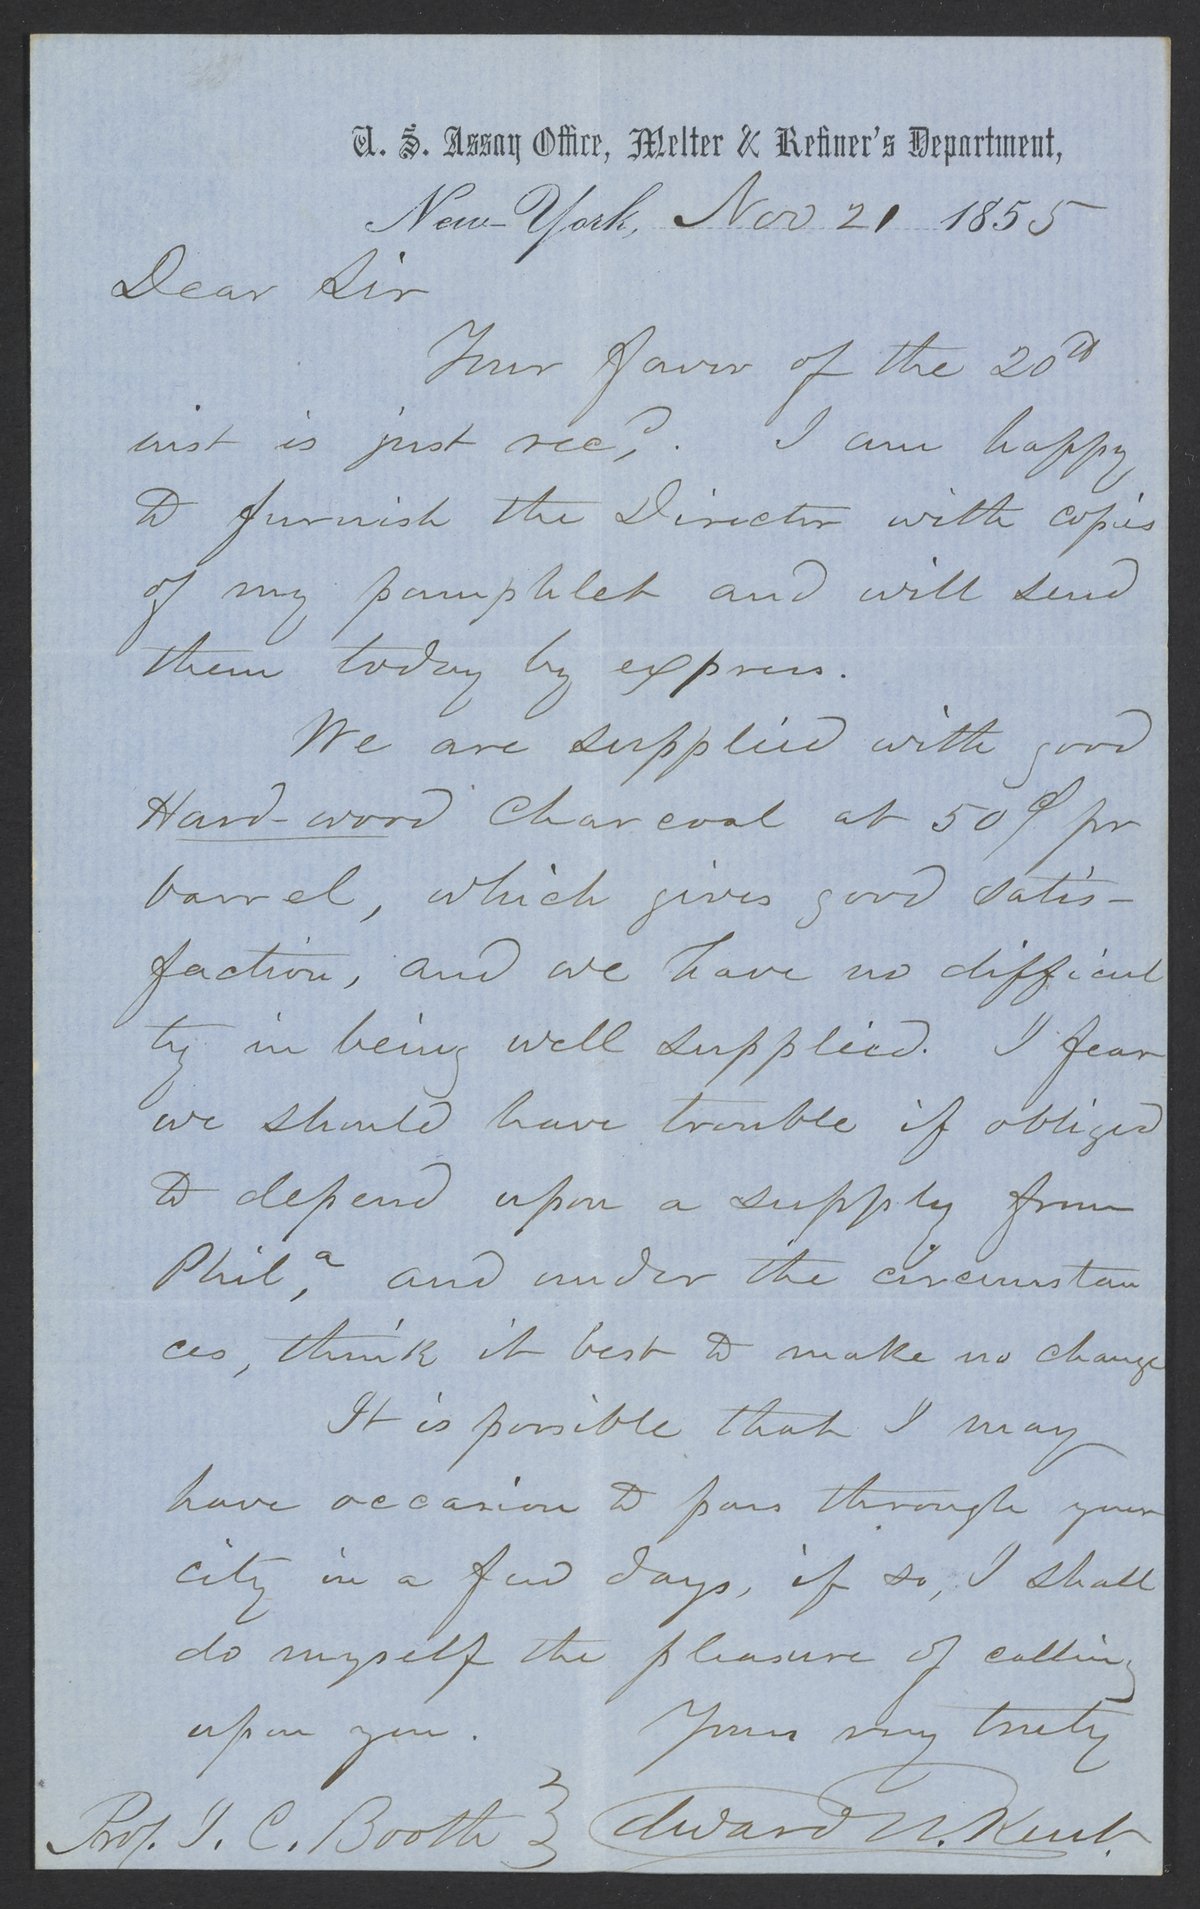 U. S. Assay Office, Melter & Refiner's Department,
New-York, Nov 21 1855
Dear Sir
Your favor of the 20th
inst is just recd. I am happy
to furnish the Director with copies
of my pamphlet and will send
them today by express.
We are supplied with good
Hard-wood charcoal at 50¢ pr
barrel, which gives good satis-
faction, and we have no difficul
ty in being well supplied. I fear
we should have trouble if obliged
to depend upon a supply from
Phila, and under the circumstan
ces, think it best to make no change
It is possible that I may
have occasion to pass through your
city in a few days, if so, I shall
do myself the pleasure of calling
upon you. Yours very truly
Prof. J. C. Booth } Edward N. Kent.